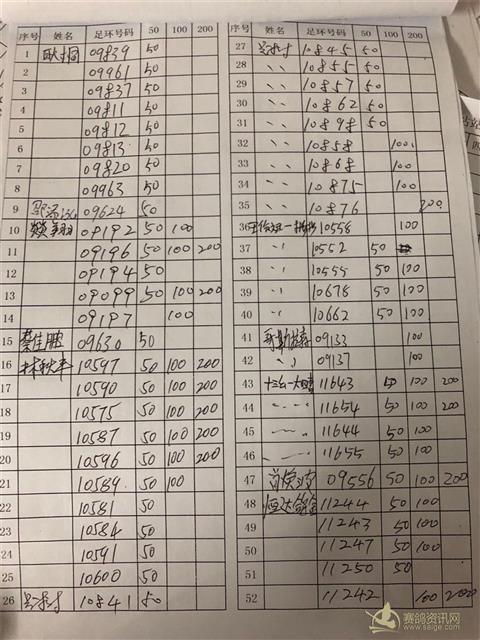 序号 姓名 足环号码 50 100 200
1 09839 50
2 09961 50
3 09837 50
4 09811 50
5 09812 50
6 09813 50
7 09820 50
8 09963 50
9 09624 50
10 09192 50 100
11 09196 50 100 200
12 09194 50
13 09099 50 100 200
14 09197 100
15 蔡佳鹏 09630 50
16 林秋平 10597 50 100 200
17 10590 50 100 200
18 10575 50 100 200
19 10587 50 100 200
20 10596 50 100 200
21 10589 50 100
22 10581 50
23 10584 50
24 10591 50
25 10600 50
26 10841 50
序号 姓名 足环号码 50 100 200
27 10845 50
28 〃 10855 50
29 〃 10857 50
30 〃 10862 50
31 〃 10898 50
32 〃 10858 100
33 〃 10868 100
34 〃 10875 100
35 〃 10876 200
36 10558 100
37 〃 10552 50
38 〃 10555 50 100
39 〃 10678 50 100
40 〃 10662 50 100
41 09133 100
42 〃 09137 100
43 11643 50 100 200
44 11654 50 100 200
45 11644 50 100
46 11655 50 100
47 09556 50 100 200
48 恒达鸽舍 11244 50 100
49 11243 50 100
50 11247 50 100
51 11250 50
52 11242 100 200
赛鸽资讯网
www.saige.com